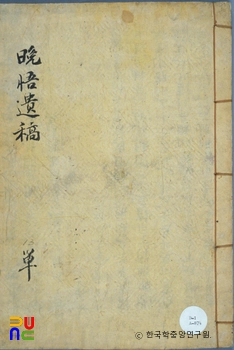 晩悟遺稿
単
ⓒ 한국학중앙연구원